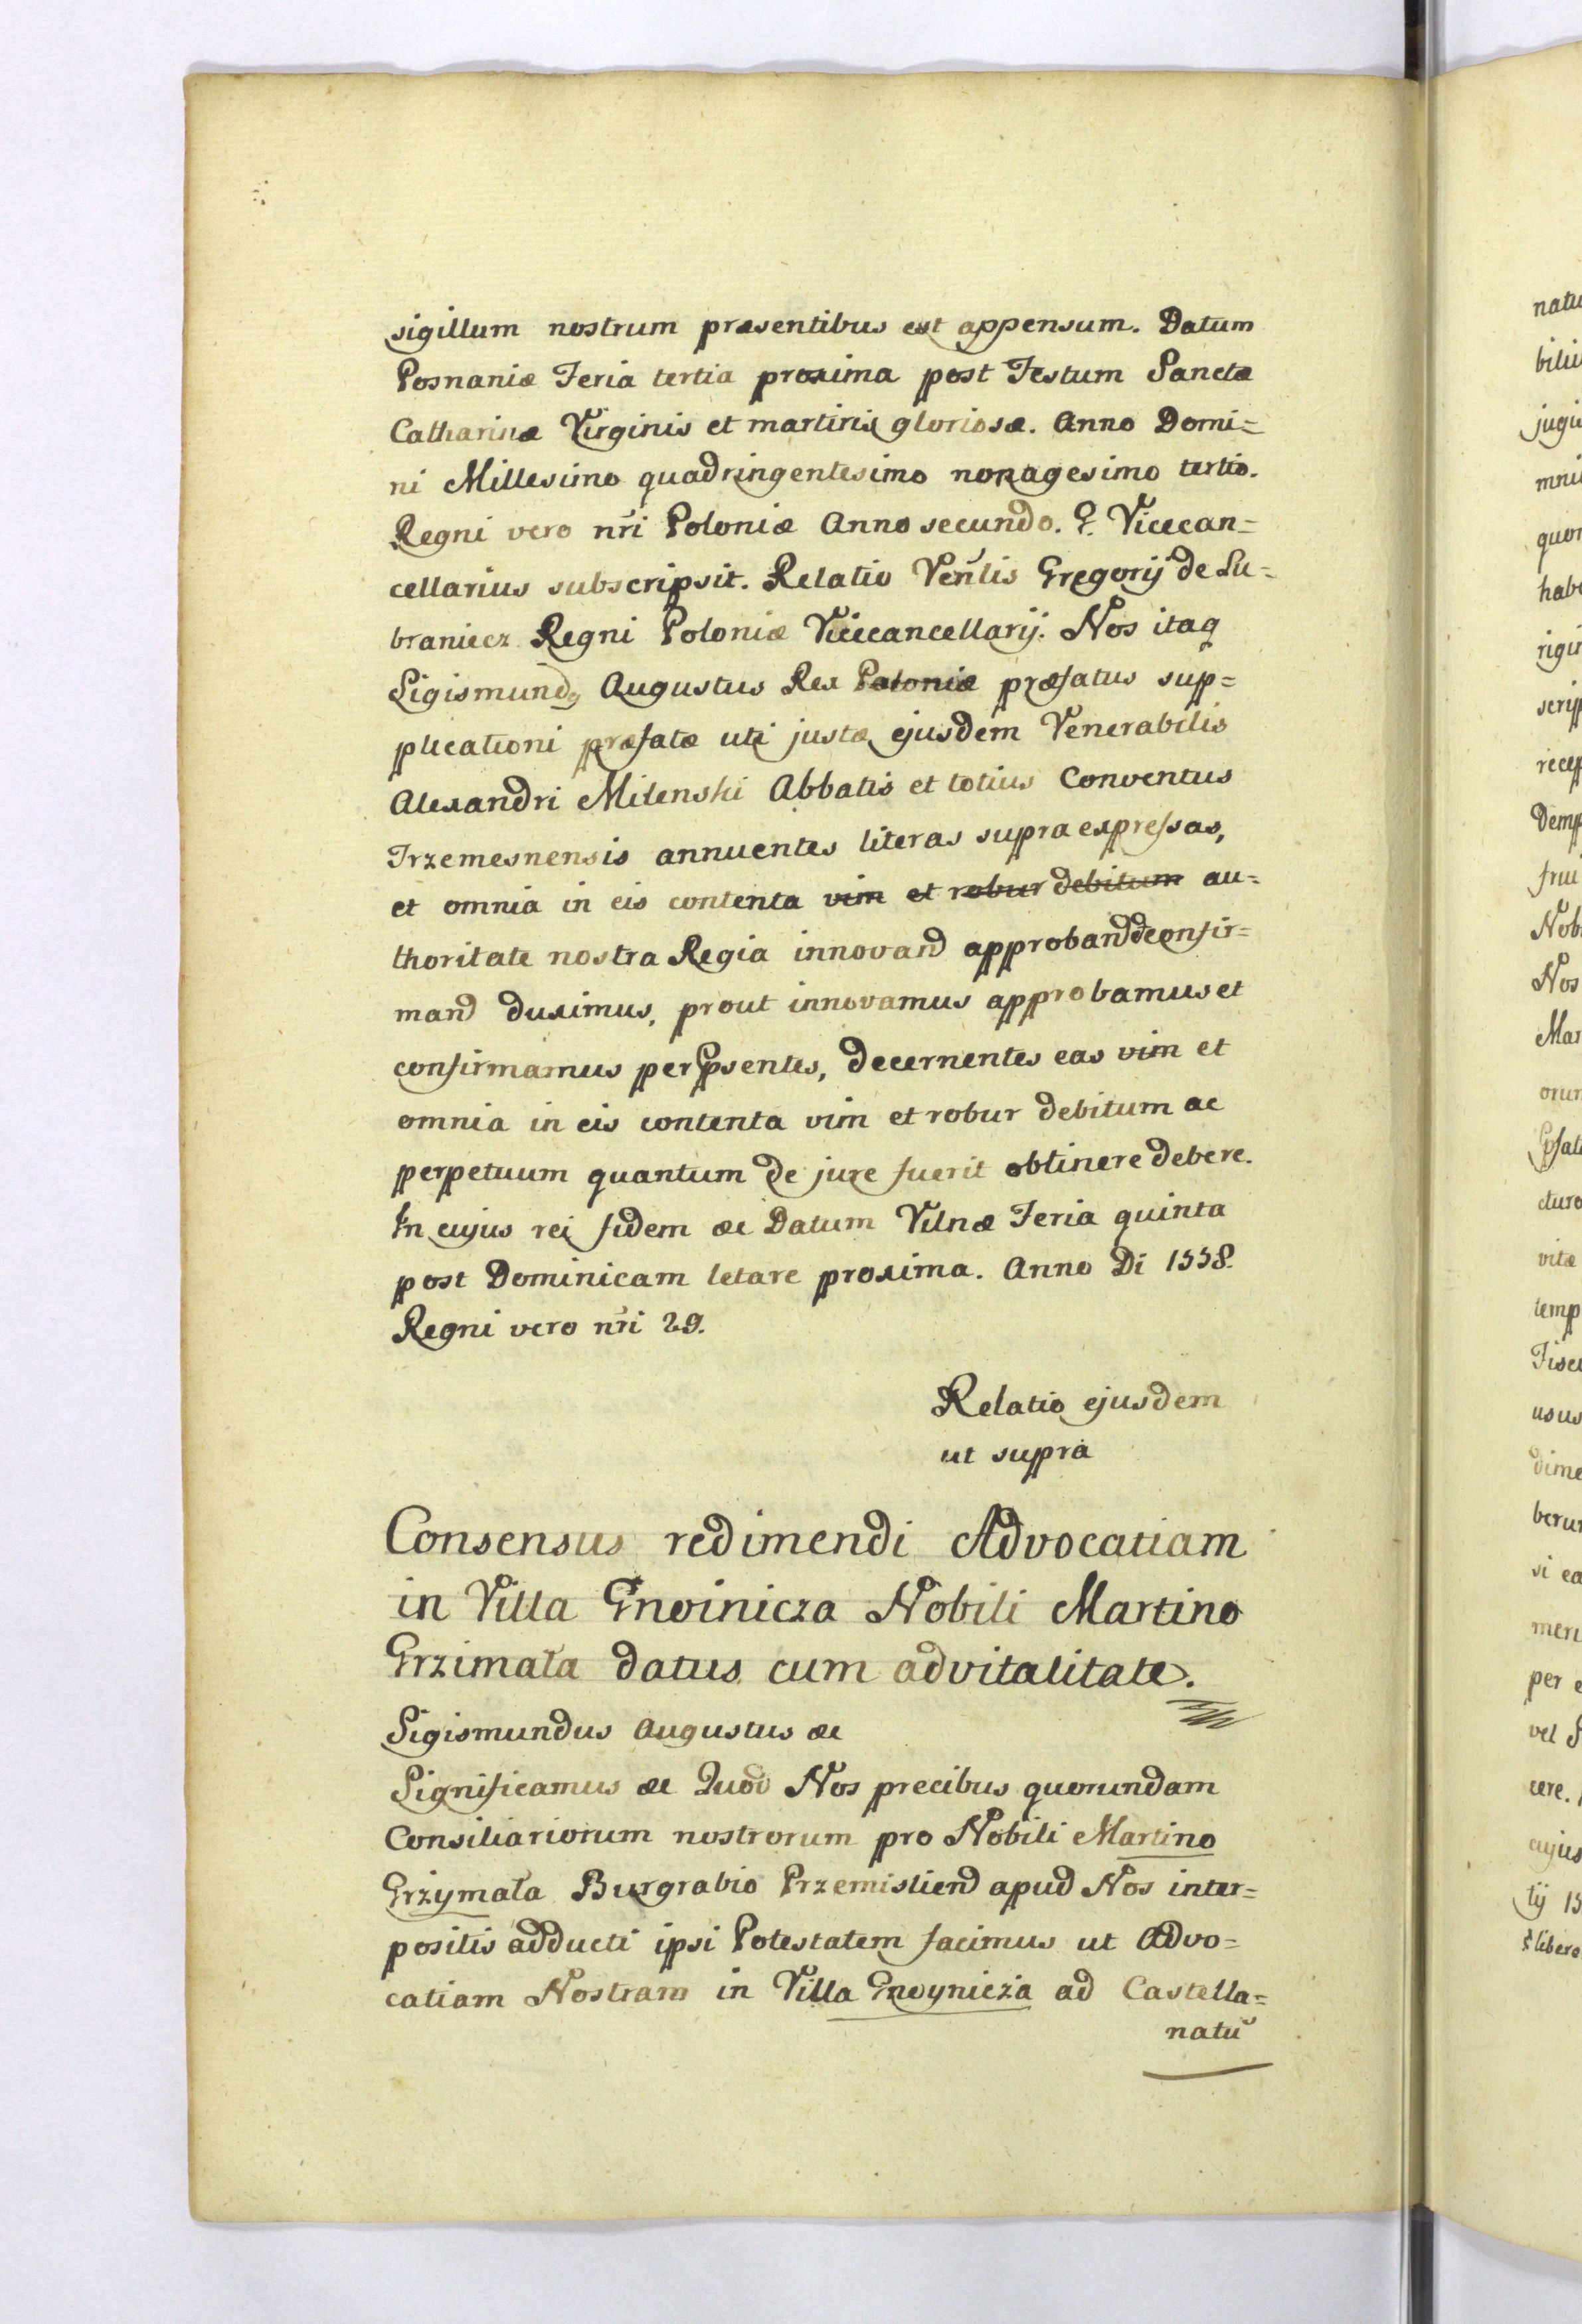 sigillum nostrum præsentibus est appensum. Datum
Posnaniæ Feria tertia proxima post Festum Sanctæ
Catharinæ Virginis et martiris gloriosæ. Anno Domi=
ni Millesimo quadringentesimo nonagesimo tertio.
Regni vero nri Poloniæ Anno secundo. G. Vicecan=
cellarius subscripsit. Relatio Venlis Gregorij de Lu=
braniecz Regni Poloniæ Vicecancellarij. Nos itaq
Sigismund9 Augustus Rex Poloniæ præfatus sup=
plicationi præfatæ uti justæ ejusdem Venerabilis
Alexandri Milenski Abbatis et totius Conventus
Trzemesnensis annuentes literas supra expressas,
et omnia in eis contenta vim et robur debitum au=
thoritate nostra Regia innovand approband & confir=
mand duximus, prout innovamus approbamus et
confirmamus per Psentes, decernentes eas vim et
omnia in eis contenta vim et robur debitum ac
perpetuum quantum de jure fuerit obtinere debere.
In cujus rei fidem &c Datum Vilnæ Feria quinta
post Dominicam letare proxima. Anno Di 1558.
Regni vero nri 29.
Relatio ejusdem
ut supra
Consensus redimendi Advocatiam
in Villa Gnoinicza Nobili Martino
Grzimała datus cum advitalitate.
Sigismundus Augustus &c
Significamus &c Quod Nos precibus quorundam
Consiliariorum nostrorum pro Nobili Martino
Grzymała Burgrabio Przemisliend apud Nos inter=
positis adducti ipsi Potestatem facimus ut Advo=
catiam Nostram in Villa Gnoynicża ad Castella=
natu
natu
bili
jugi
mni
quor
hab
rigi
scrip
recep
Demp
frui
Nob
Nos
Mar
orum
Psat
cturo
vitæ
temp
Fisc
usus
dime
berun
si ea
meri
per e
vel S
cere.
cujus
tij 15
libera